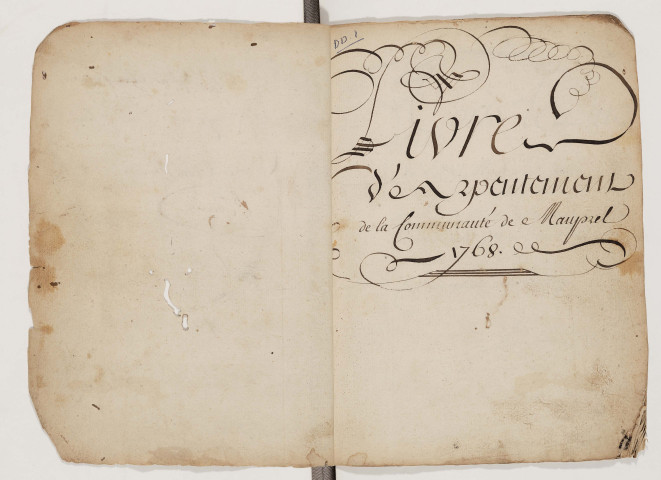 DD.1
Livre
d'Arpentement
de la Communauté de Mauprel
1768.